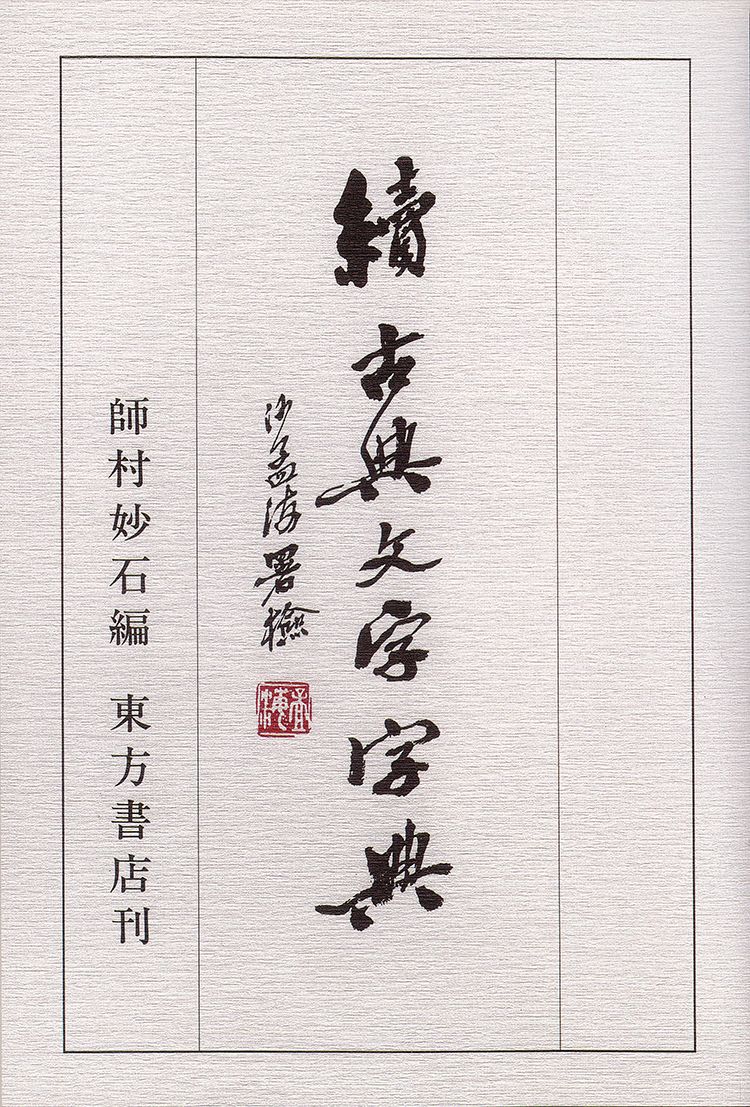 續古典文字字典
沙孟海署檢
孟海
師村妙石編 東方書店刊